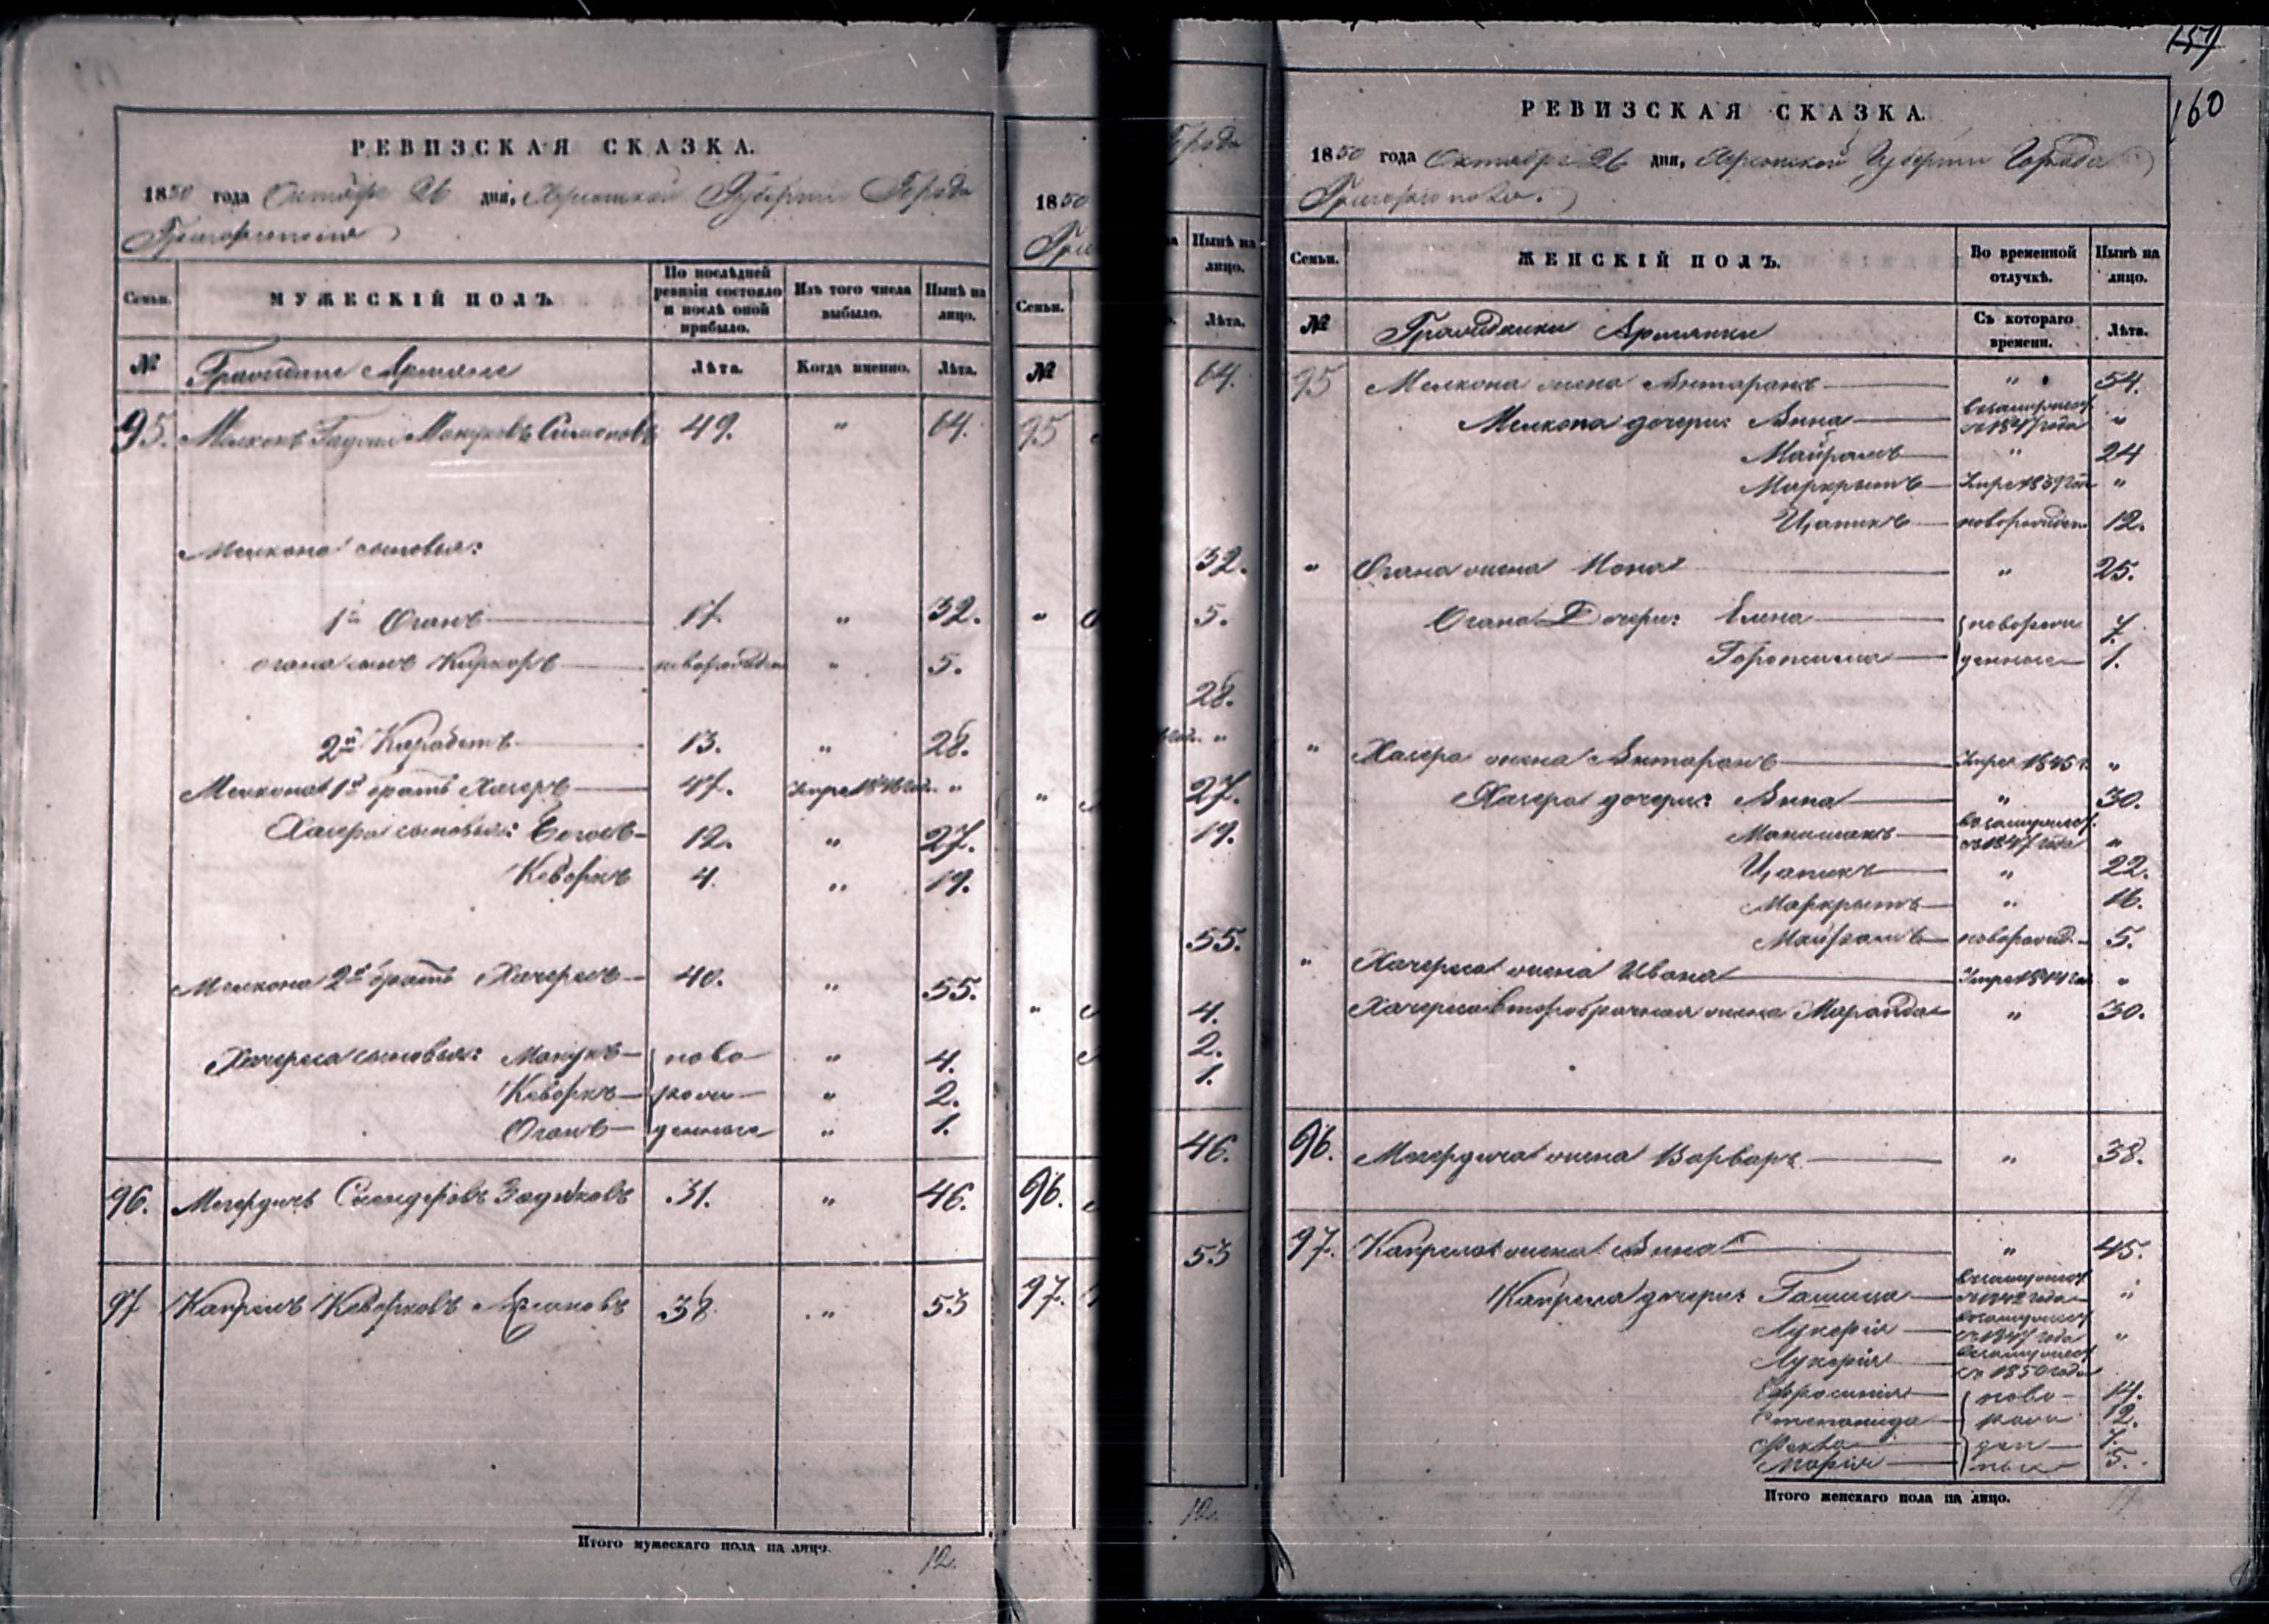 РЕВИЗСКАЯ СКАЗКА.
1850 года Октября 26 дня, Херсонской Губернии Города
Григориополя
Семьи.
МУЖЕСКІЙ ПОЛЪ
По послѣдней ревизіи состояло и послѣ оной прибыло.
Изъ того числа выбыло.
Нынѣ на лицо.
№
Граждане Армяне
Лѣта.
Когда именно.
Лѣта.
95. Мелконъ Мануковъ Симоновъ 49. " 64.
Мелкона сыновья:
1й Оганъ 17. " 32.
Огана сынъ Киркоръ новорожден " 5.
2й Карабетъ 13. " 28.
Мелкона 1й братъ Хачеръ 47. Умре 1846 год. "
Хачера сыновья: Богосъ 12. " 27.
Кеворкъ 4. " 19.
Мелкона 2й братъ Хачересъ 40. " 55.
Хачереса сыновья: Манукъ ново " 4.
Кеворкъ рож " 2.
Оганъ денные " 1.
96. Мегердичъ Скендеровъ Задиковъ 31. " 46.
97 Капрелъ Кеворковъ 38. " 53
Итого мужескаго пола на лицо. 12.
1850
Семьи.
№
95
"
"
"
96.
97.
Города
Нынѣ на лицо.
Лѣта.
64.
32.
5.
28.
"
27.
19.
55.
4.
2.
1.
46.
53
12.
159
160
РЕВИЗСКАЯ СКАЗКА.
1850 года Октября 26 дня, Херсонской Губерніи Города
Григориополя.
Семьи.
ЖЕНСКІЙ ПОЛЪ.
Во временной отлучкѣ.
Нынѣ на лицо.
№
Гражданки Армянки
Съ котораго времени.
Лѣта.
95 Мелкона жена Антарамъ " 54.
Мелкона дочери: Анна въ замужест. съ 1847 года "
Майрамъ " 24
Маркрытъ Умре 1839 год "
Цагикъ новорожден 12.
" Огана жена Нона " 25.
Огана Дочери: Елена новорож 7.
денные 1.
" Хачера жена Антарамъ Умре 1845 г. "
Хачера дочери: Анна " 30.
въ замужест. съ 1847 года "
Цагикъ " 22.
Маркрытъ " 16.
Майрамъ новорожд. 5.
" Хачереса жена Ивана Умре 1844 год "
Хачереса второбрачная жена " 30.
96. Мегердича жена Варваръ " 38.
97. Капрела жена Анна " 45.
Капрела дочери: въ замужест. съ 1842 года "
Лукерія въ замужест. съ 1847 года "
Лукерія въ замужест. съ 1850 года
Ефросинія ново 14.
Степанида рож 12.
Фекла ден 7.
Марія ные 5.
Итого женскаго пола на лицо.